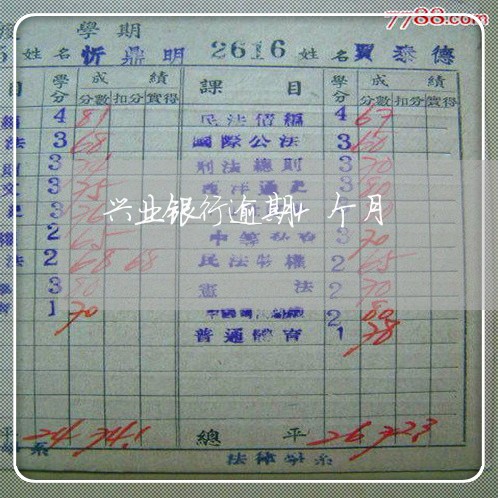 7788.com
學期
姓名 忻鼎明 2616 姓名 賈泰德
目 學分 成績 課目 學分 成績
分數 扣分 實得 分數 扣分 實得
4 81 民法債編 4 67
法 3 68 國際公法 3 60
3 刑法總則 3 70
3 75 西洋通史 3 80
兴业银行逾期4个月
2 65 3 70
法 2 68 68 民法物權 2 65
3 80 憲法 2 70
1 70 2 80
普通體育 1 78
平 24 74.1 總平 26 72.3
系 法律學系